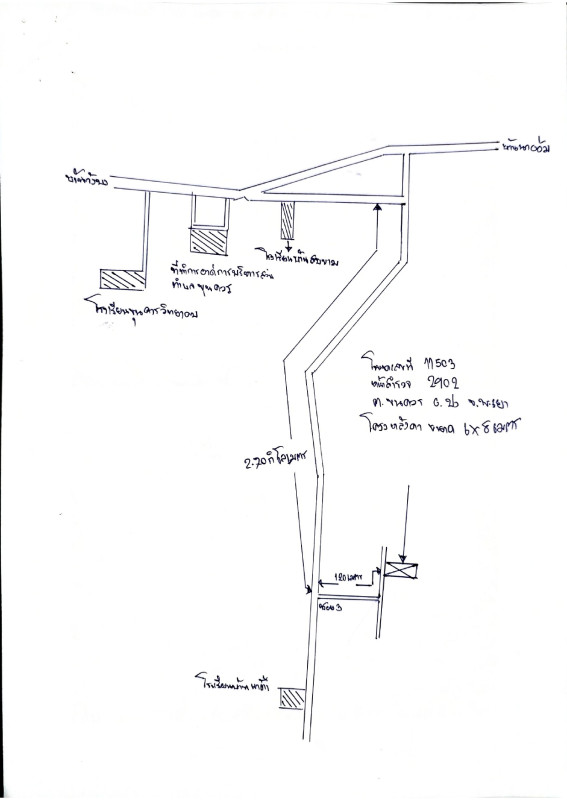 โรงเรียนบ้าน
ที่ทำการองค์การบริหารส่วน
ตำบลขุนควร
โรงเรียนขุนควรวิทยาคม
โฉนดเลขที่ 11503
หน้าสำรวจ 2902
ต.ขุนควร อ.ปง จ.พะเยา
โครงหลังคา ขนาด 6x8 เมตร
2.70 กิโลเมตร
120 เมตร
ซอย 3
โรงเรียนบ้าน